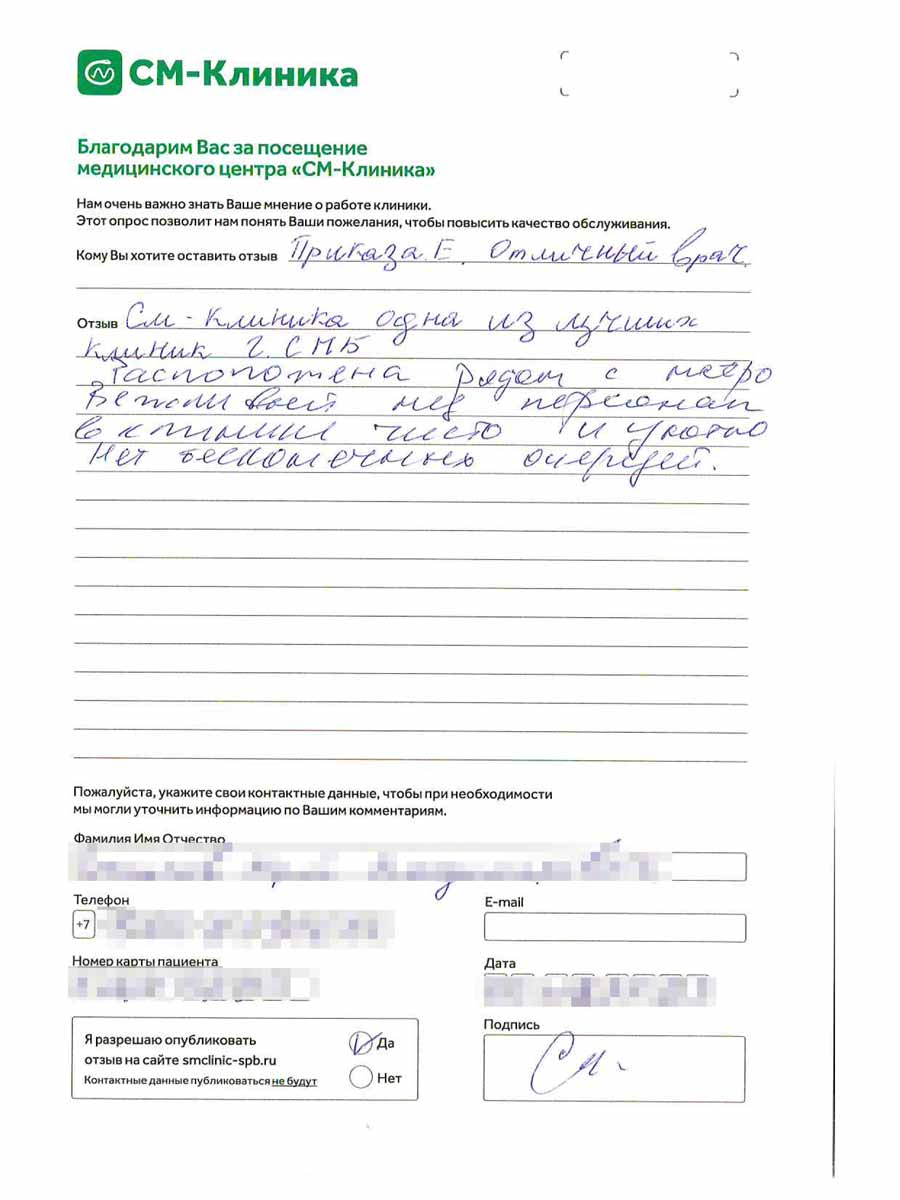 СМ-Клиника
Благодарим Вас за посещение
медицинского центра «СМ-Клиника»
Нам очень важно знать Ваше мнение о работе клиники.
Этот опрос позволит нам понять Ваши пожелания, чтобы повысить качество обслуживания.
Кому Вы хотите оставить отзыв Приказа Е. Отличный врач.
Отзыв См-клиника одна из лучших
клиник г. СПБ
Расположена рядом с метро
Вежливый мед персонал
в клинике чисто и уютно
Нет бесконечных очередей.
Пожалуйста, укажите свои контактные данные, чтобы при необходимости
мы могли уточнить информацию по Вашим комментариям.
Фамилия Имя Отчество
Телефон
E-mail
+7
Номер карты пациента
Дата
Подпись
Я разрешаю опубликовать
отзыв на сайте smclinic-spb.ru
Контактные данные публиковаться не будут
Да
Нет